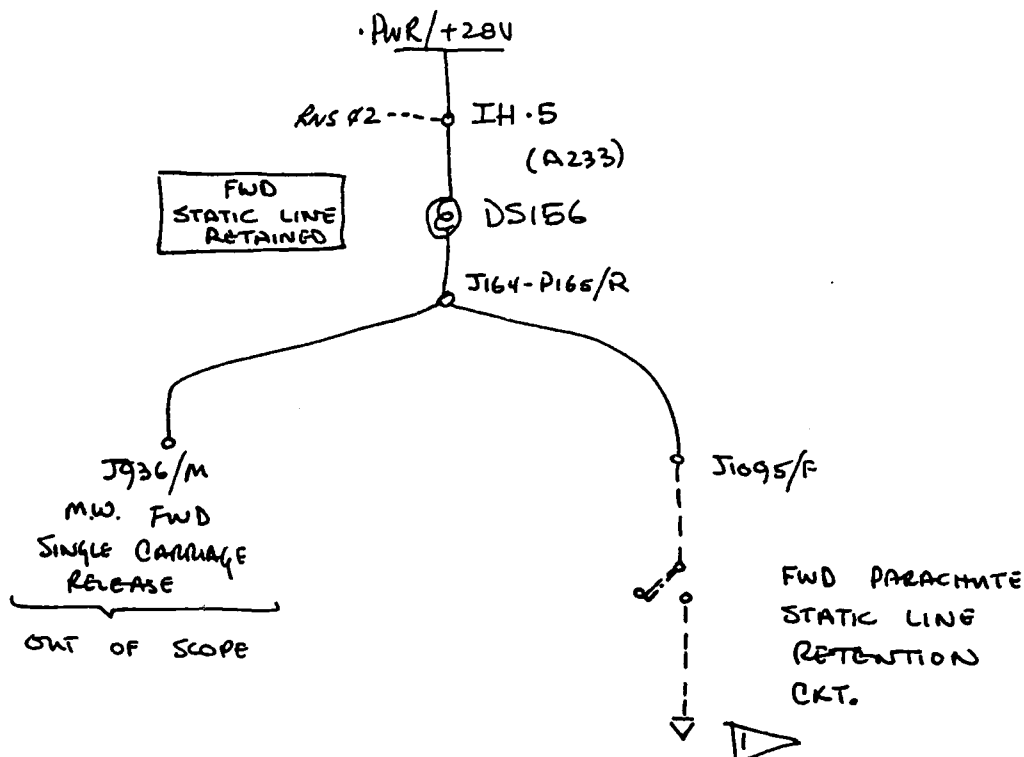 .PWR/+28V
RNS #2
IH.5
(A233)
FWD
STATIC LINE
RETAINED
DS156
J164-P165/R
J936/M
M.W. FWD
SINGLE CARRIAGE
RELEASE
OUT OF SCOPE
J1095/F
FWD PARACHUTE
STATIC LINE
RETENTION
CKT.
1